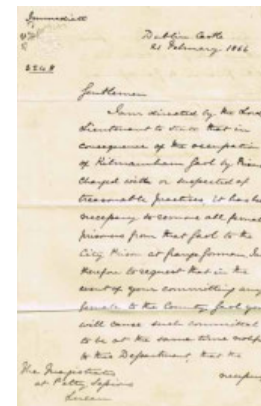 Immediate
Dublin Castle
21 February 1866
Gentlemen
I am directed by the Lord
Lieutenant to state that in
consequence of the occupation
of Kilmainham Gaol by Prison
charged with or suspected of
treasonable practices, it has be
necessary to remove all female
prisoners from that Gaol to the
City Prison at Grangegorman. I
therefore to request that in the
event of your committing any
female to the County Gaol you
will cause such committal
to be at the same time notif
to this Department, that the
necessary
The Magistrates
at Petty Sessions
Lucan